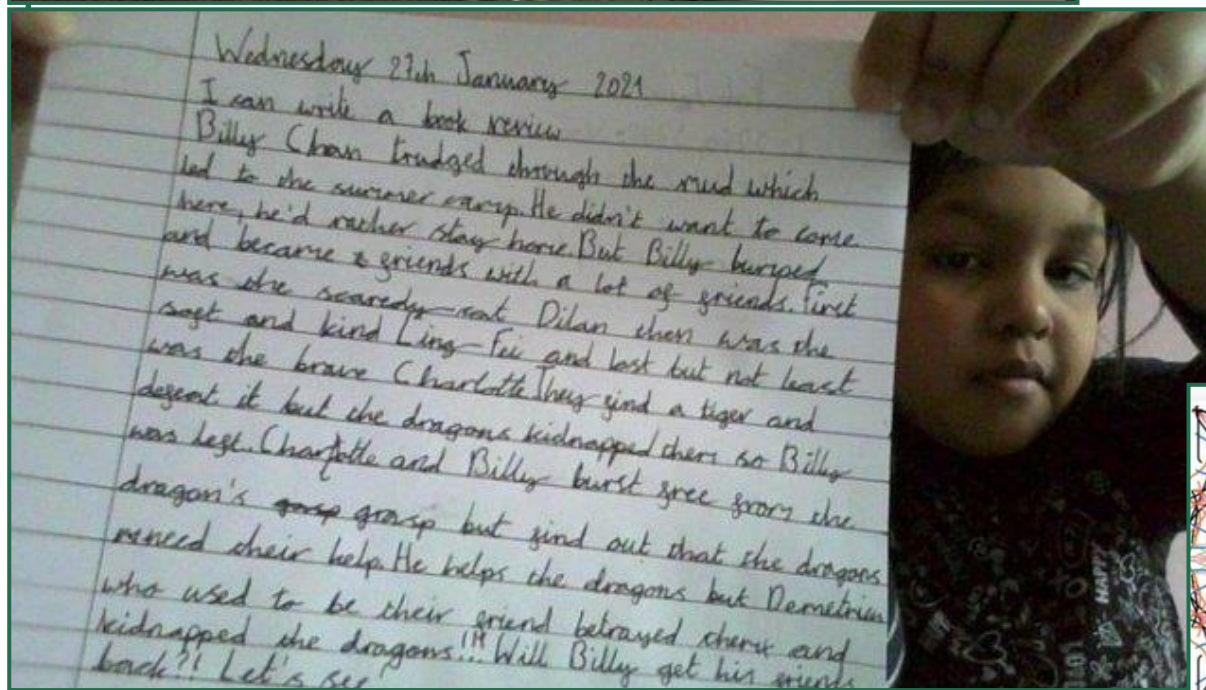 Wednesday 27th January 2021
I can write a book review
Billy Chan trudged through the mud which
led to the summer camp. He didn't want to come
here, he'd rather stay home. But Billy bumped
and became friends with a lot of friends. First
was the scaredy-cat Dilan then was the
soft and kind Ling-Fei and last but not least
was the brave Charlotte They find a tiger and
defeat it but the dragons kidnapped them so Billy
was left. Charlotte and Billy burst free from the
dragon's grasp but find out that the dragons
need their help. He helps the dragons but Demetrius
who used to be their friend betrayed them and
kidnapped the dragons!!! Will Billy get his friends
back?! Let's see
HAPPY
101